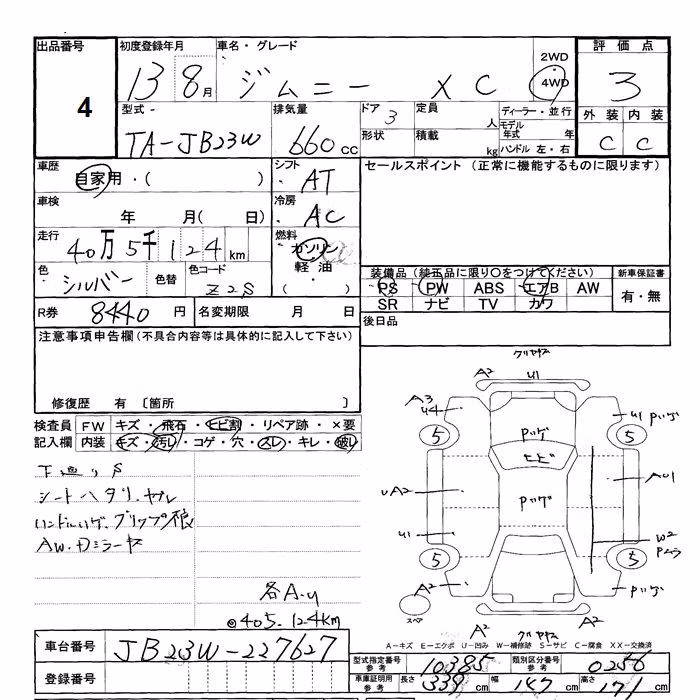 出品番号 初度登録年月 車名・グレード 評価点
4 13 8月 ジムニー XC 2WD 4WD 3
型式 排気量 ドア 3 定員 人 ディーラー・並行 外装 内装
TA-JB23W 660cc 形状 積載 kg モデル年式 年 C C
ハンドル 左・右
車歴 シフト セールスポイント (正常に機能するものに限ります)
自家用・( ) AT
車検 冷房
年 月( 日) AC
走行 燃料
40万5千124km ガソリン
色 シルバー 色替 色コード Z2S 軽油・( )
装備品 (純正品に限り○をつけてください) 新車保証書
PS PW ABS エアB AW 有・無
SR ナビ TV カワ
R券 8440円 名変期限 月 日 後日品
注意事項申告欄(不具合内容等は具体的に記入して下さい)
修復歴 有 〔箇所 〕
検査員 FW キズ・飛石・ヒビ割・リペア跡・×要
記入欄 内装 キズ・汚れ・コゲ・穴・スレ・キレ・破レ
下廻りS
シートヘタリ.ヤブレ
AW.Dミラーヤ
各A.U
◎405.124km
A2 U1
A3
U4 U1 Pハゲ
5 Pハゲ 5
ヒビ
A2 Pハゲ AU1
U1 W2
5 5
A2 Pハゲ
スペア
A2 A2
A-キズ E-エクボ U-凹み W-補修跡 S-サビ C-腐食 XX-交換済
車台番号 JB23W-227627
登録番号
型式指定番号 参考 10385 類別区分番号 参考 0256
車庫証明用 参考 長さ 339cm 幅 147cm 高さ 171cm